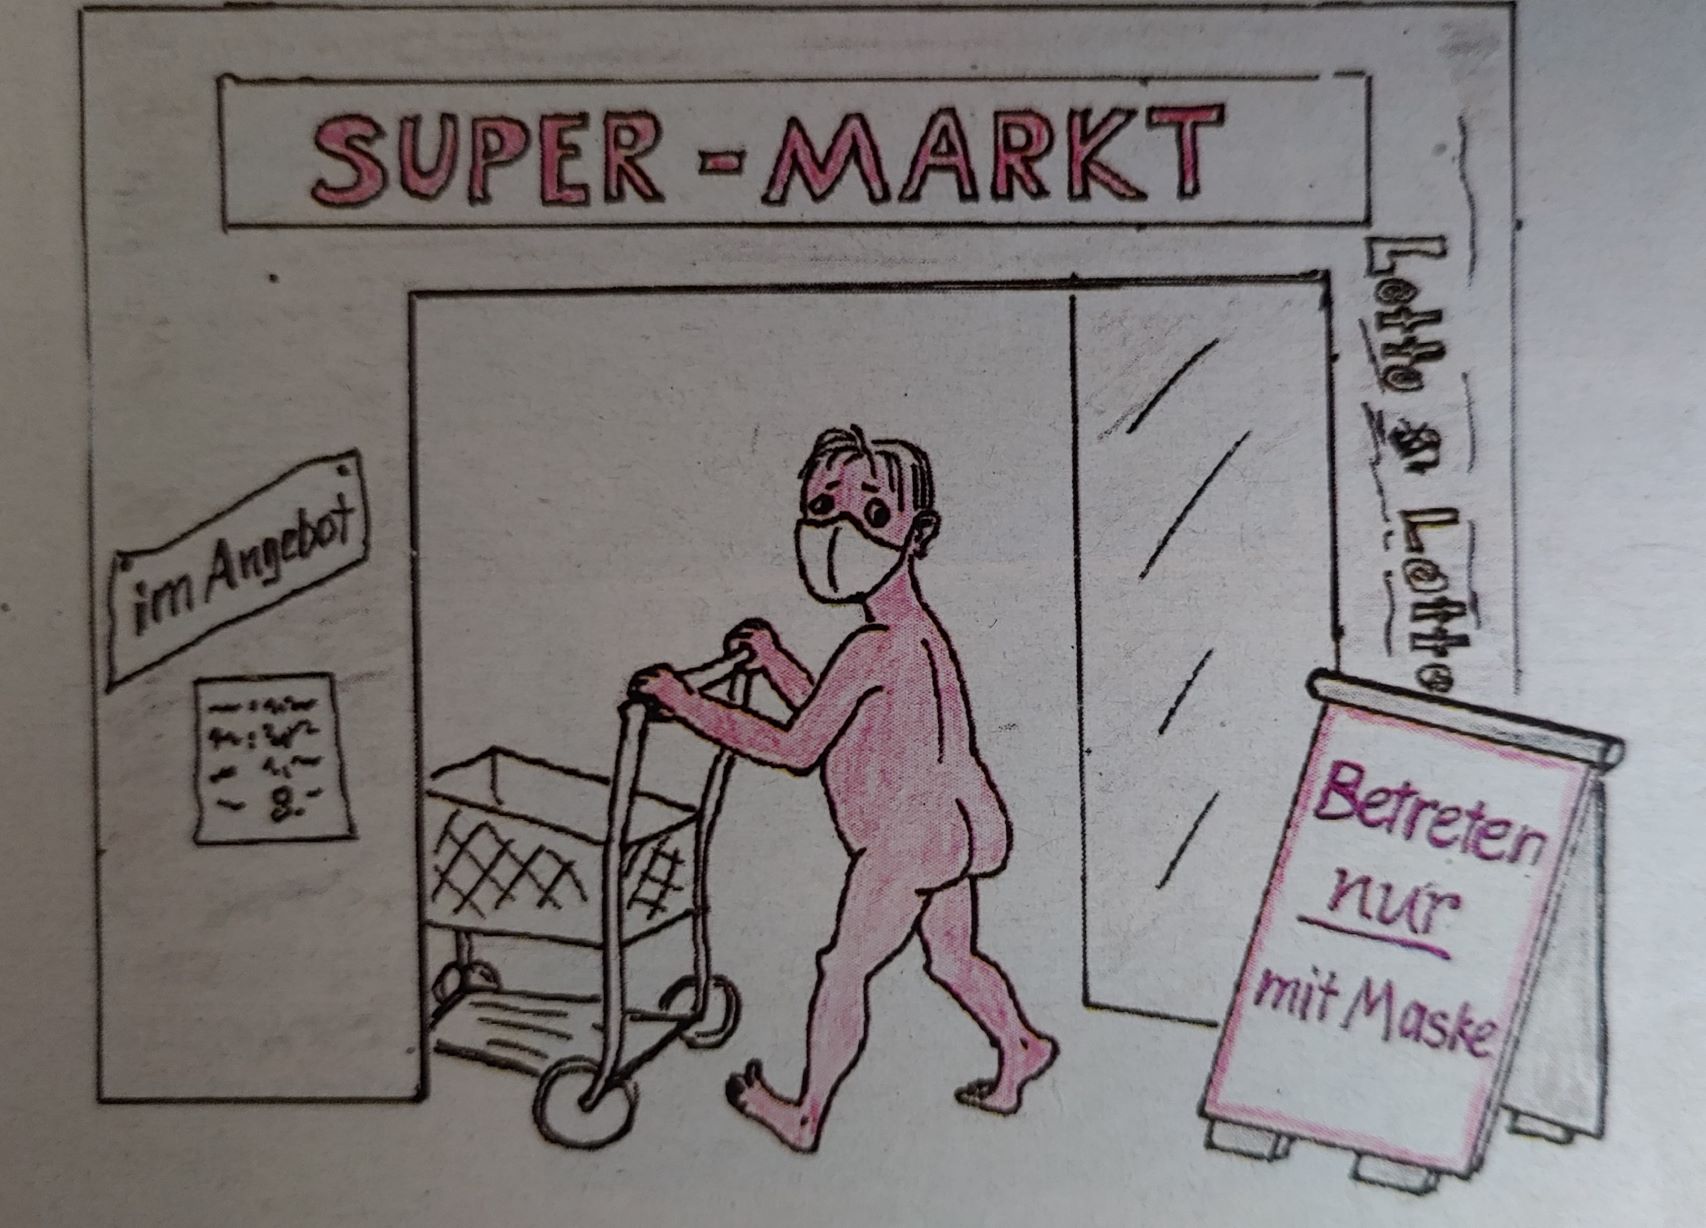 SUPER-MARKT
Lotto
Lotto
im Angebot
Betreten
nur
mit Maske